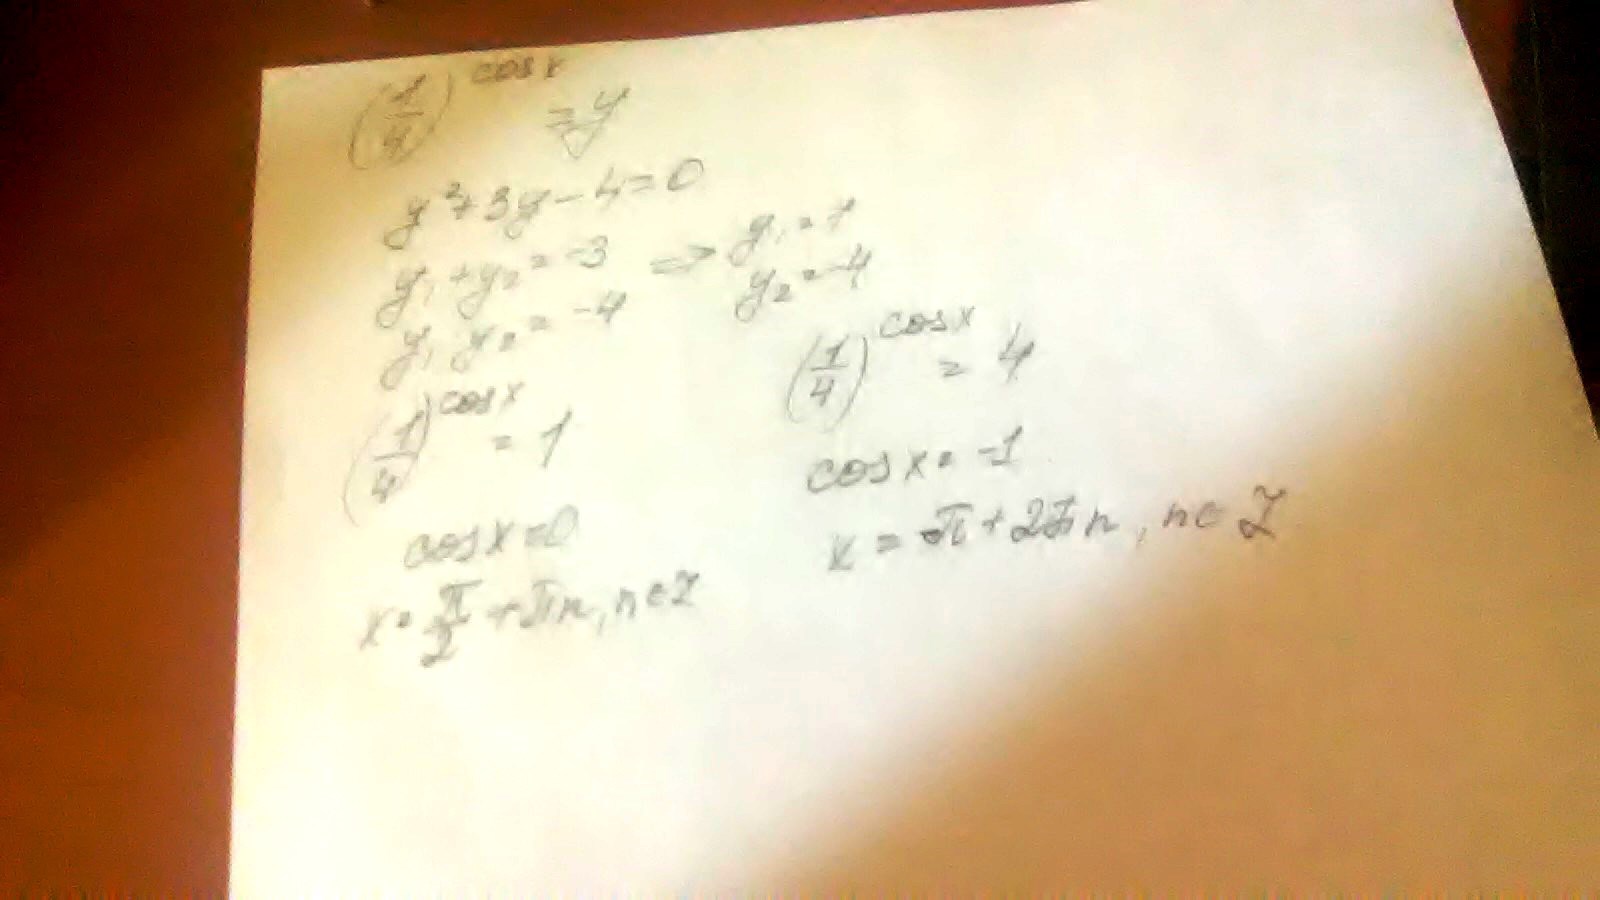 (1/4)^cosx = y
y²+3y-4=0
y₁+y₂=-3 ⇒ y₁=1
y₁·y₂=-4 y₂=-4
(1/4)^cosx = 1
cosx=0
x=π/2+πn, n∈Z
(1/4)^cosx = 4
cosx=-1
x=π+2πn, n∈Z